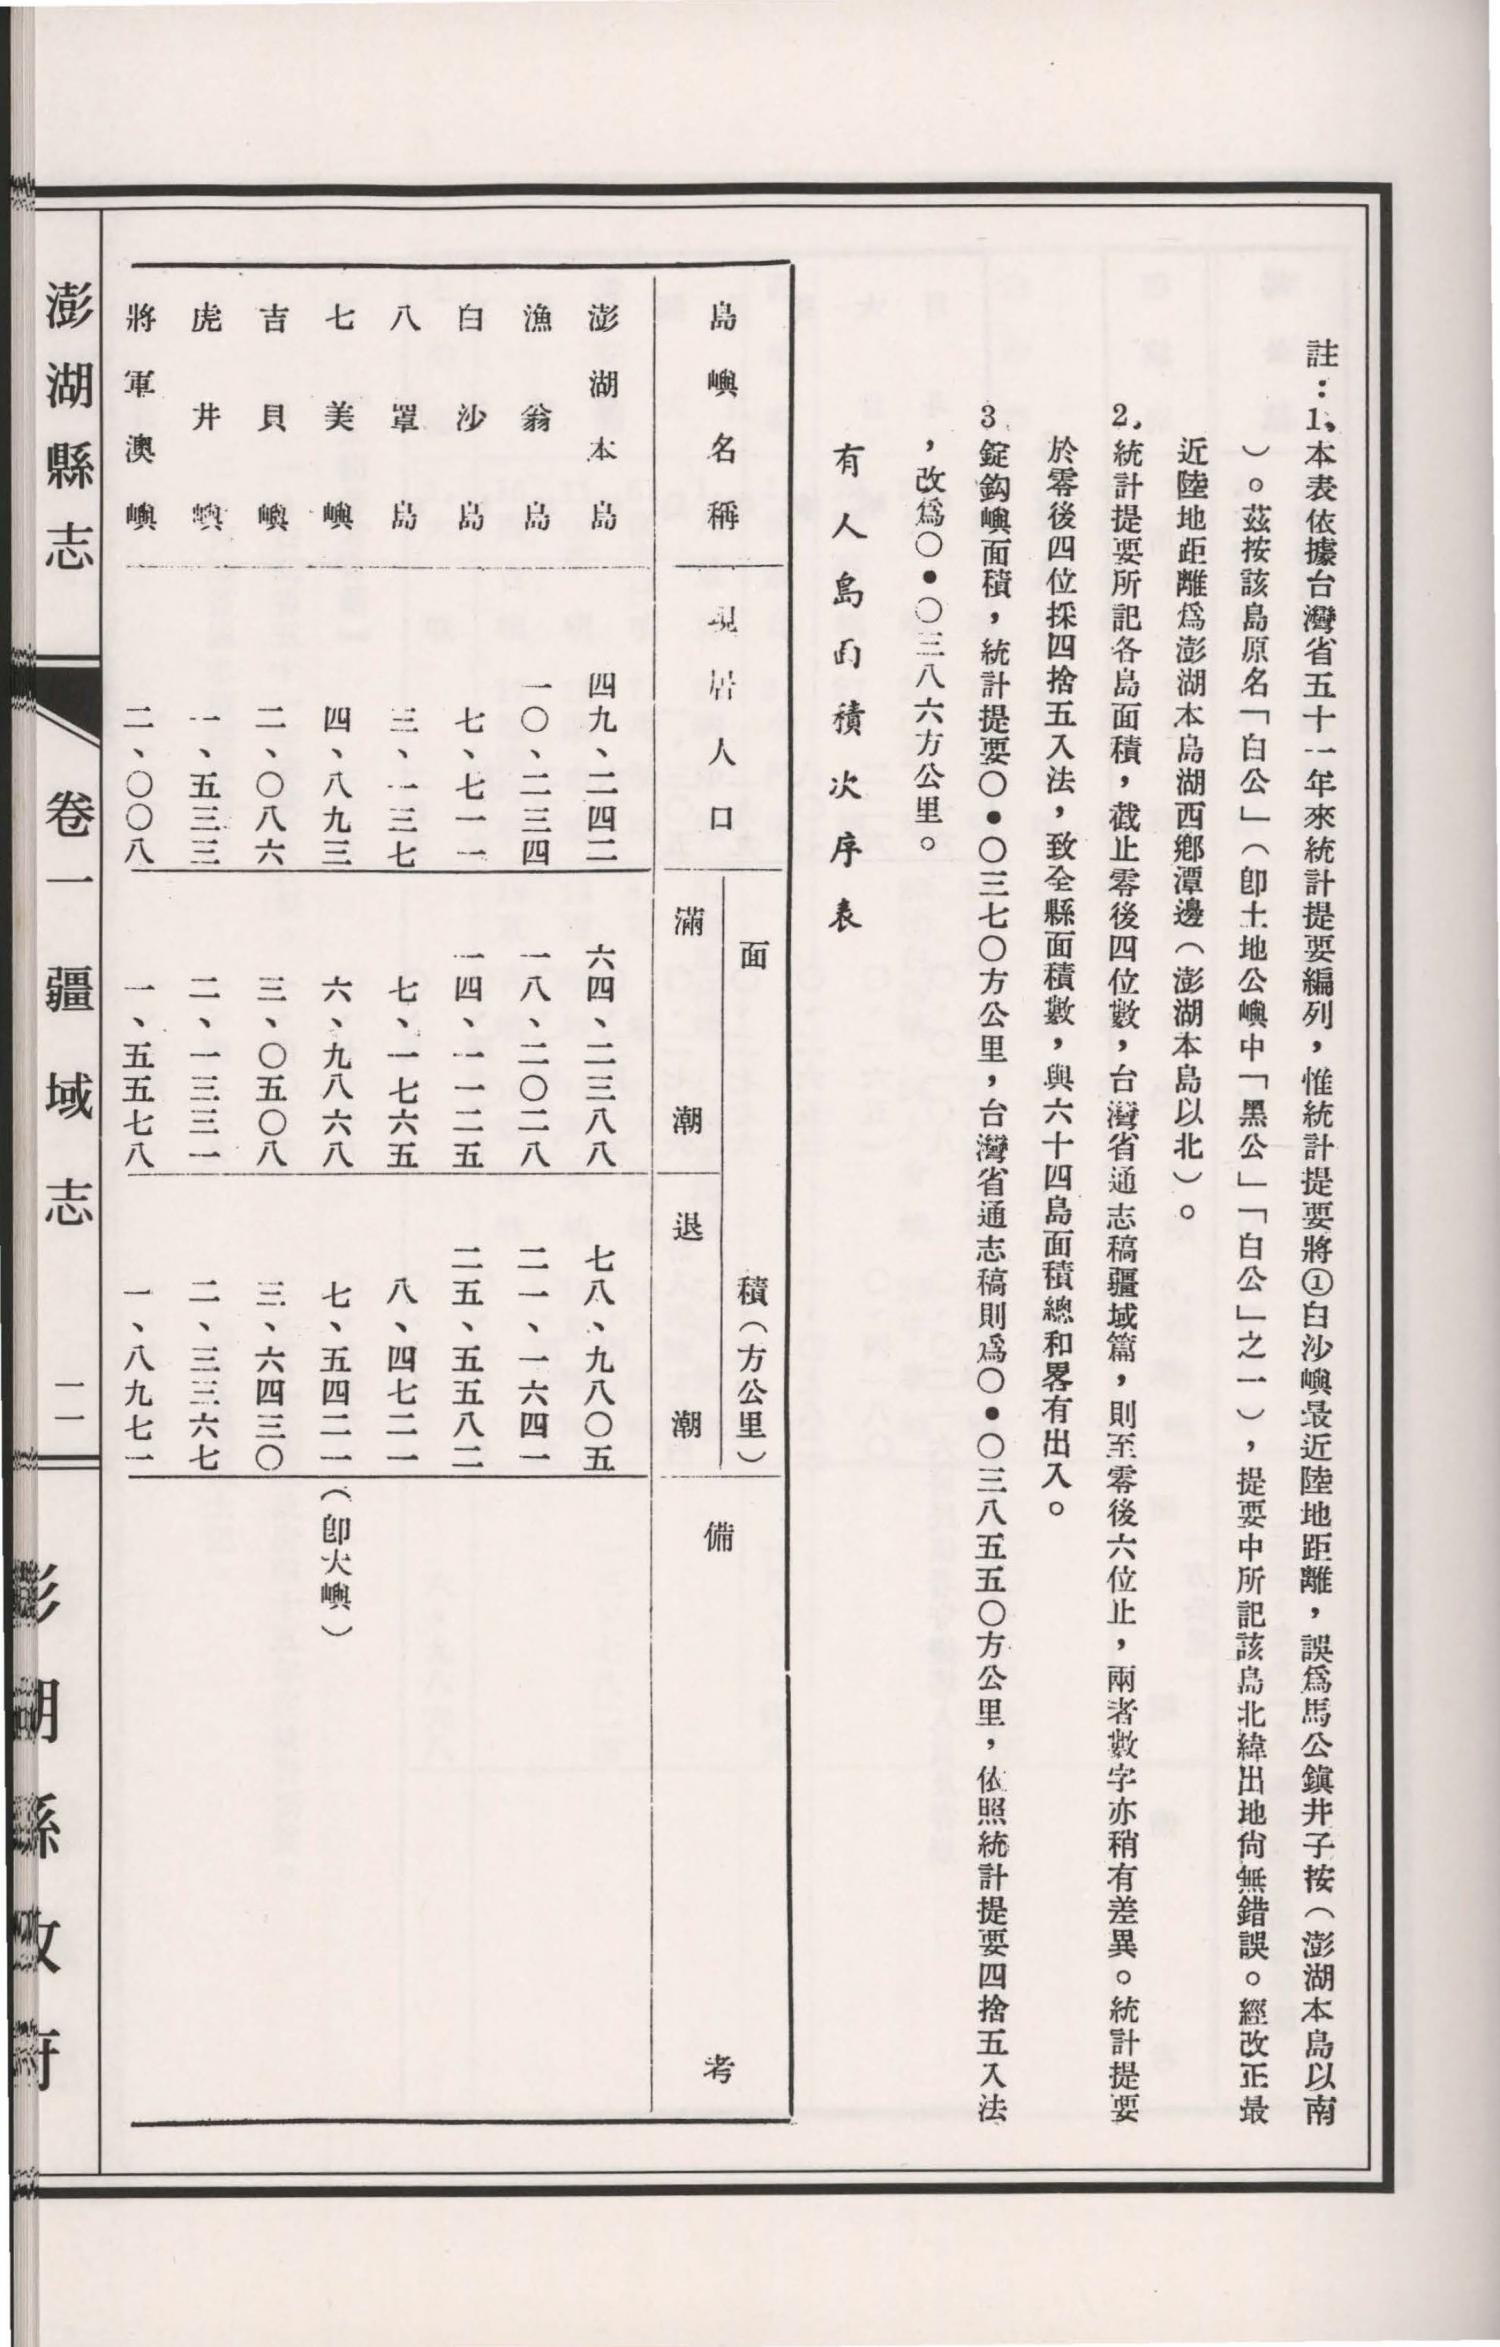 註：1、本表依據台灣省五十一年來統計提要編列，惟統計提要將①白沙嶼最近陸地距離，誤爲馬公鎮井子按（澎湖本島以南
）。茲按該島原名「白公」（卽土地公嶼中「黑公」「白公」之一），提要中所記該島北緯出地尙無錯誤。經改正最
近陸地距離爲澎湖本島湖西鄉潭邊（澎湖本島以北）。
2、統計提要所記各島面積，截止零後四位數，台灣省通志稿疆域篇，則至零後六位止，兩者數字亦稍有差異。統計提要
於零後四位採四捨五入法，致全縣面積數，與六十四島面積總和畧有出入。
3、錠鈎嶼面積，統計提要〇•〇三七〇方公里，台灣省通志稿則爲〇•〇三八五五〇方公里，依照統計提要四捨五入法
，改爲〇•〇三八六方公里。
有人島面積次序表
島嶼名稱 現居人口 面積（方公里） 滿潮 退潮 備考
澎湖本島 四九、二四二 六四、二三八八 七八、九八〇五
漁翁島 一〇、二三四 一八、二〇二八 二一、一六四一
白沙島 七、七一一 一四、一一二五 二五、五五八二
八罩島 三、一三七 七、一七六五 八、四七二一
七美嶼 四、八九三 六、九八六八 七、五四二一（卽大嶼）
吉貝嶼 二、〇八六 三、〇五〇八 三、六四三〇
虎井嶼 一、五三三 二、一三三一 二、三三六七
將軍澳嶼 二、〇〇八 一、五五七八 一、八九七一
澎湖縣志 卷一疆域志 一一 澎湖縣政府